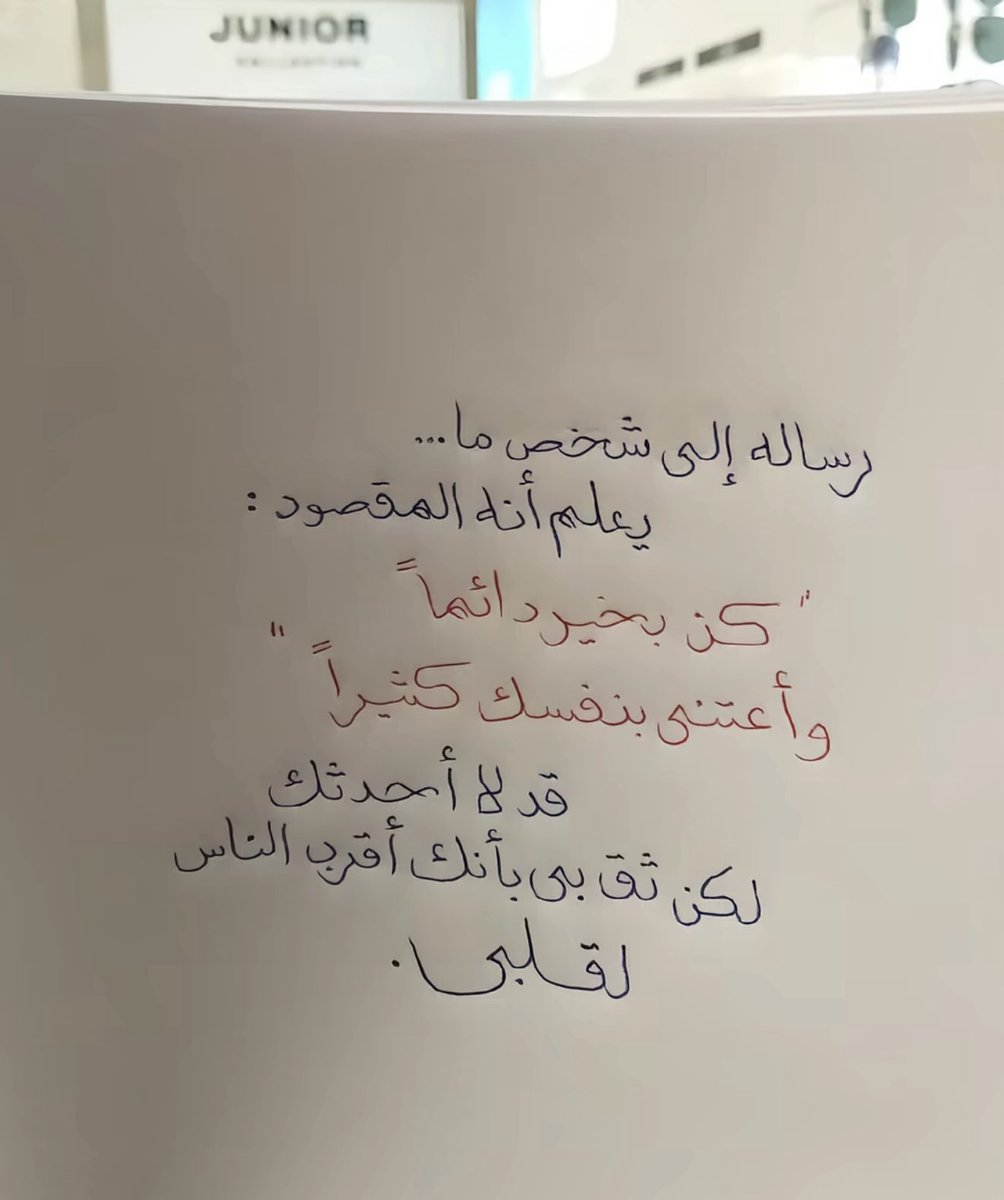 JUNIOR
رساله إلى شخص ما...
يعلم أنه المقصود :
"كن بخير دائماً
وأعتنى بنفسك كثيراً "
قد لا أحدثك
لكن ثق بى بأنك أقرب الناس
لقلبى .